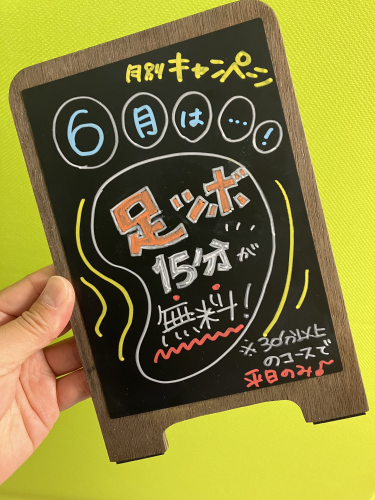 月別キャンペーン
6月は…!
足ツボ
15分が
無料!
※30分以上
のコースで
平日のみ♪